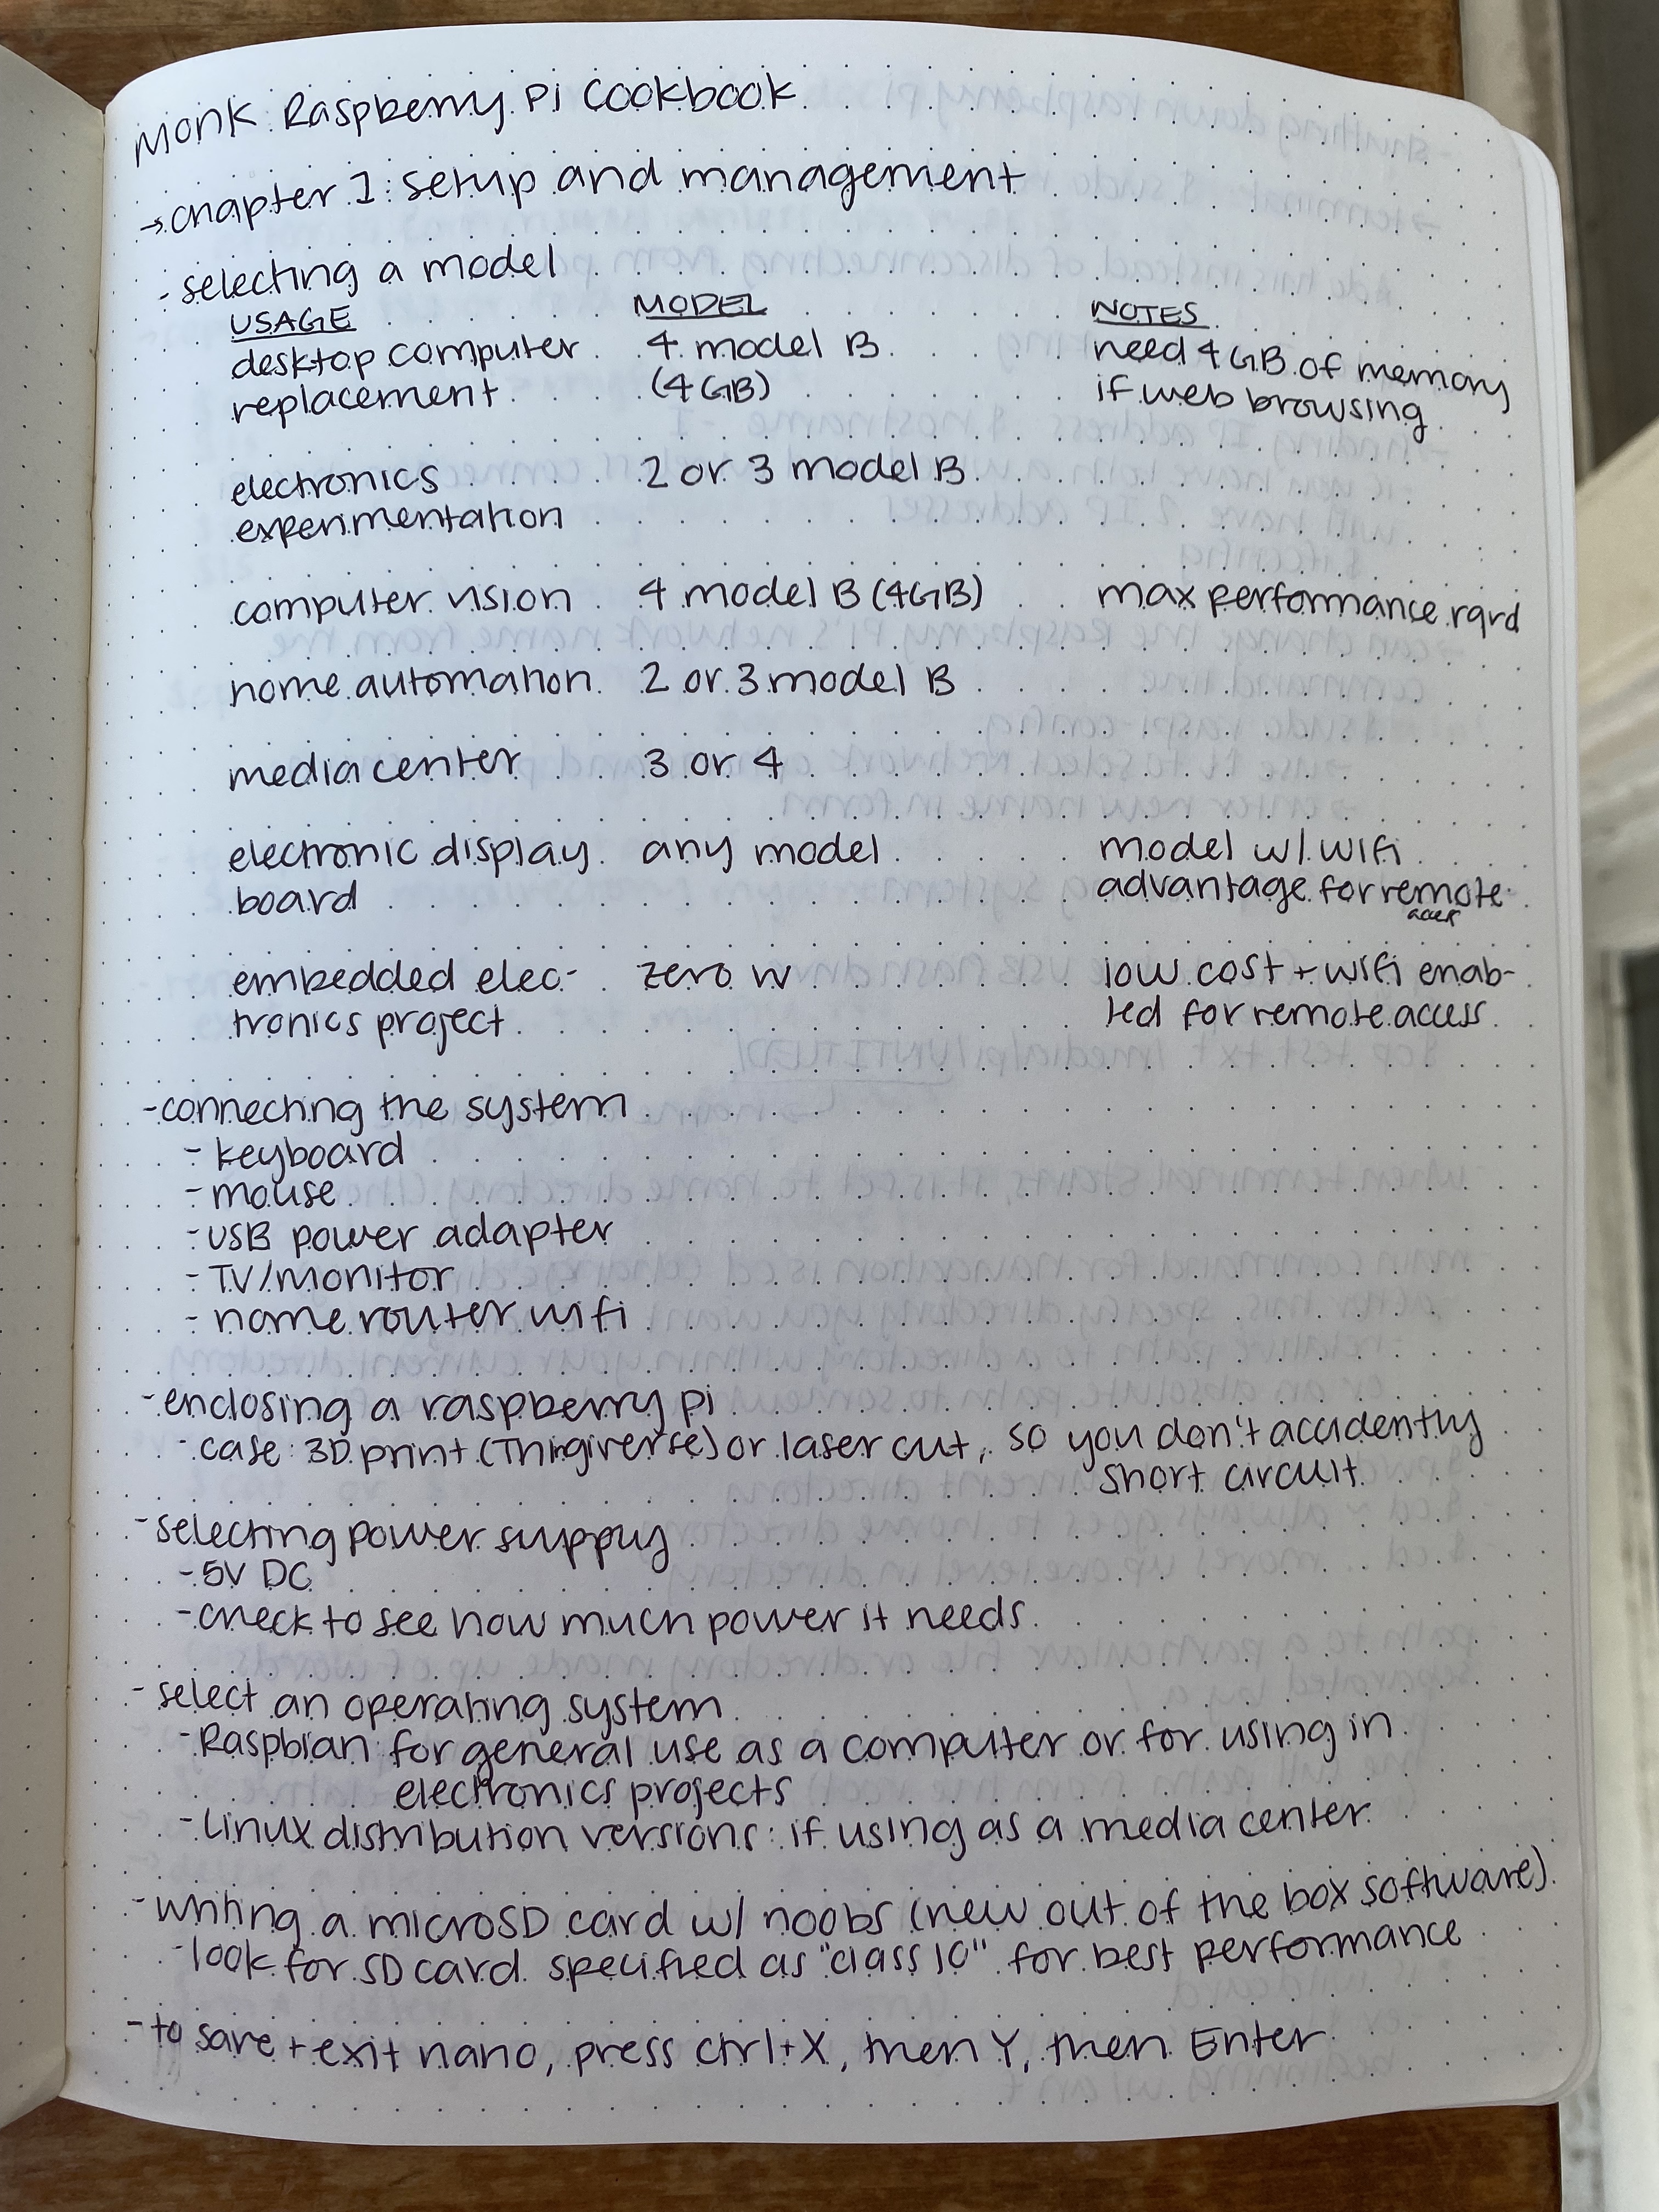 Monk Raspberry Pi Cookbook
→ chapter 1: setup and management
- selecting a model
USAGE MODEL NOTES
desktop computer 4 model B need 4GB of memory
replacement (4GB) if web browsing
electronics 2 or 3 model B
experimentation
computer vision 4 model B (4GB) max performance rqrd
home automation 2 or 3 model B
media center 3 or 4
electronic display any model model w/ wifi
board advantage for remote
access
embedded elec- zero w low cost + wifi enab-
tronics project led for remote access
- connecting the system
- keyboard
- mouse
- USB power adapter
- TV/monitor
- home router wifi
- enclosing a raspberry pi
- case: 3D print (Thingiverse) or laser cut, so you don't accidently
short circuit
- selecting power supply
- 5V DC
- check to see how much power it needs
- select an operating system
- Raspbian for general use as a computer or for using in
electronics projects
- Linux distribution versions: if using as a media center
- writing a microSD card w/ noobs (new out of the box software)
- look for SD card specified as "class 10" for best performance
- to save + exit nano, press ctrl+X, then Y, then Enter